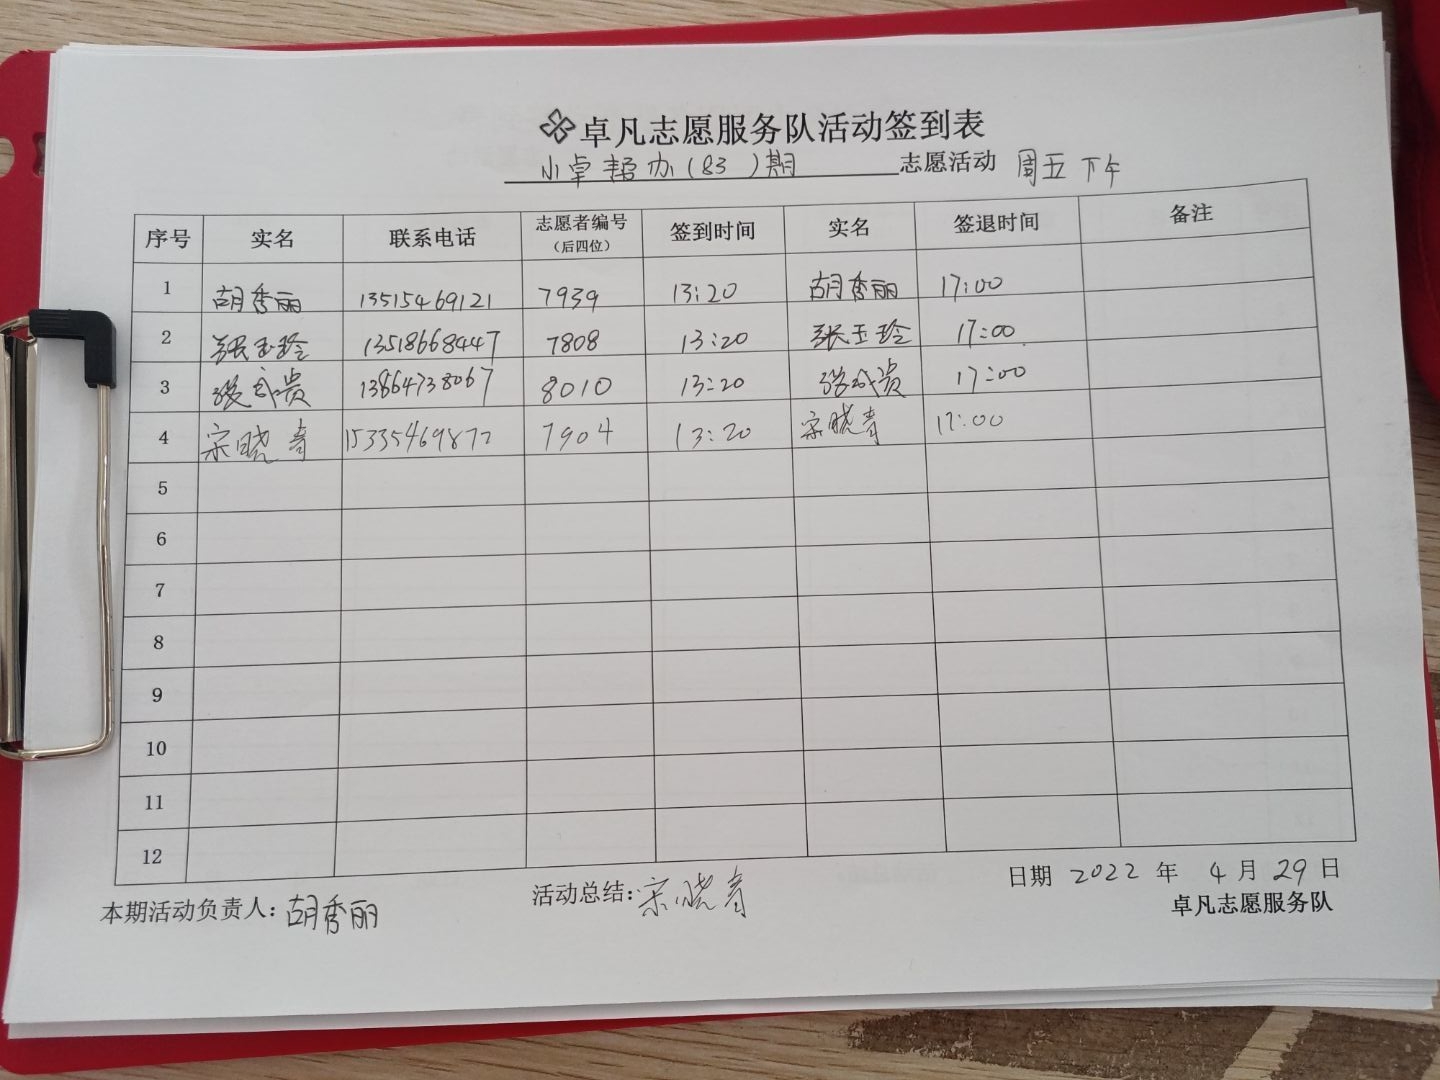 卓凡志愿服务队活动签到表
小卓帮办(83)期 志愿活动 周五下午
序号 实名 联系电话 志愿者编号（后四位） 签到时间 实名 签退时间 备注
1 胡秀丽 13515469121 7939 13:20 胡秀丽 17:00
2 张玉玲 13518668447 7808 13:20 张玉玲 17:00
3 张成贵 13864738067 8010 13:20 张成贵 17:00
4 宋晓青 15335469877 7904 13:20 宋晓青 17:00
5
6
7
8
9
10
11
12
日期 2022 年 4 月 29 日
本期活动负责人：胡秀丽 活动总结：宋晓青 卓凡志愿服务队